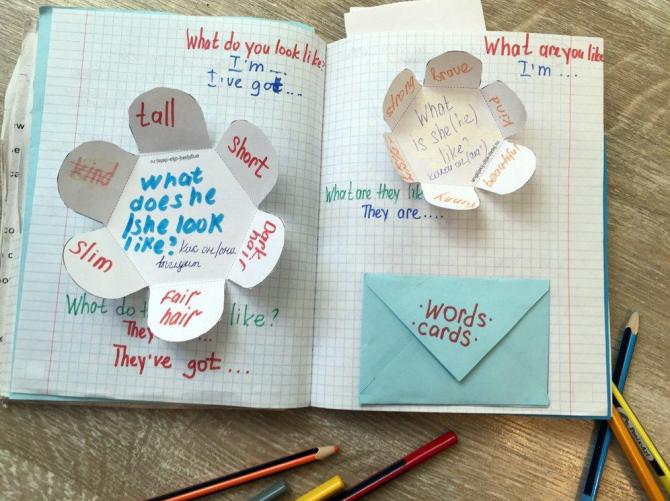 What do you look like?
I'm ...
I've got ...
tall
short
Dark
hair
Fair
hair
slim
kind
what
does he
/she look
like? Как он/она
выглядит
What do t like?
They ...
They've got ...
What are you like
I'm ...
Brave
kind
beautiful
funny
What
is she(he)
like?
What are they like
They are ....
·Words·
·cards·